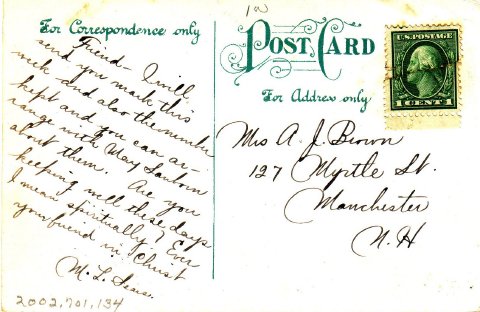 in
For Correspondence only
POST CARD
For Address only
U.S. POSTAGE
1 CENT 1
Friend - I will
send you mark this
week and also the number
kept and you can ar-
range with May Sanborn
about them. Are you
keeping well these days
I mean spiritually? Ever
your friend in Christ
M. L.
Mrs A. J. Brown
127 Myrtle St.
Manchester
N. H
2002,701,134